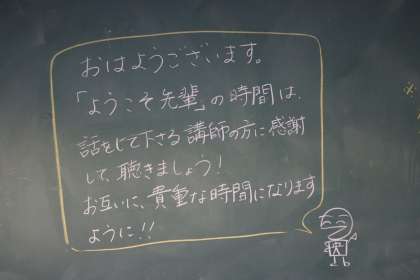 おはようございます。
「ようこそ先輩」の時間は、
話をして下さる講師の方に感謝
して、聴きましょう!
お互いに、貴重な時間になります
ように!!